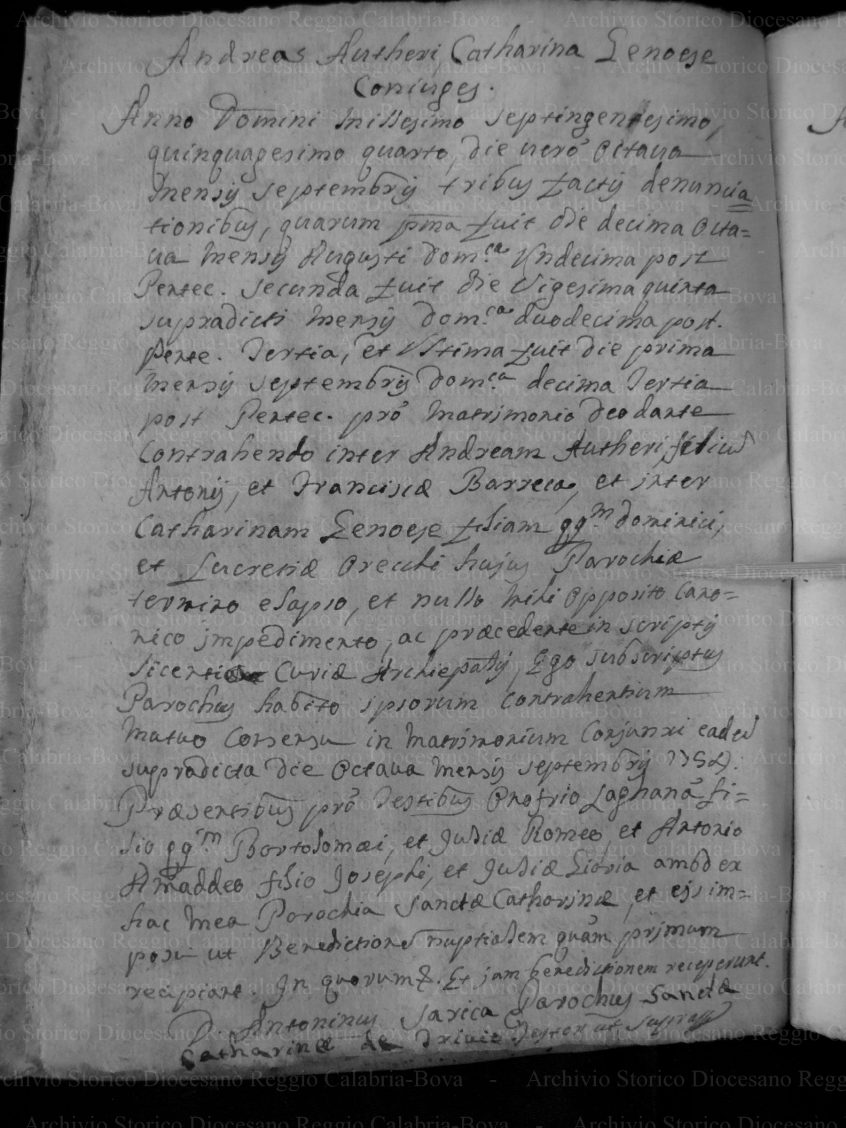 Andreas Autheri, Catharina Genoese
Coniuges.
Anno Domini Millesimo septingentesimo,
quinquagesimo quarto, die verò octava
Mensis septembris tribus factis denuncia
tionibus, quarum pma fuit die decima octa=
va Mensis Augusti Dom.ca Undecima post
Pentec. secunda fuit die vigesima quinta
supradicti Mensis Dom.ca duodecima post.
Pente. Tertia, et Ultima fuit die prima
Mensis septembris Dom.ca decima Tertia
post Pentec. prò Matrimonio deodante
Contrahendo inter Andream Autheri, filiu
Antonij, et Franciscæ Barreca, et inter
Catharinam Genoese filiam qq.m Dominici,
et Lucretiæ Orecchi hujus Parochiæ
termino elapso, et nullo Mihi Opposito Cano=
nico impedimento, ac præcedente in scriptis
licentia Curiæ Archiepālis, Ego subscriptus
Parochus habito ipsorum contrahentium
Mutuo Consensu in Matrimonium Conjunxi eade
supradicta die Octava Mensis septembris 1754.
Præsentibus prò Testibus Onofrio Laghanà fi=
lio qq.m Bortolomæi, et Judiæ Romeo, et Antonio
Amaddeo filio Josephi, et Judiæ Livria ambo ex
hac Mea Parochia Sanctæ Catharinæ, et ejs im=
posui ut Benedictione nuptialem quàm primum
recipiant. In quorum &. Et jam benedictionem receperunt.
D. Antoninus Sarica Parochus Sanctæ
Catharinæ de Trivio testor ut supra
Archivio Storico Diocesano Reggio Calabria-Bova - Archivio Storico Diocesano Reggio Calabria-Bova